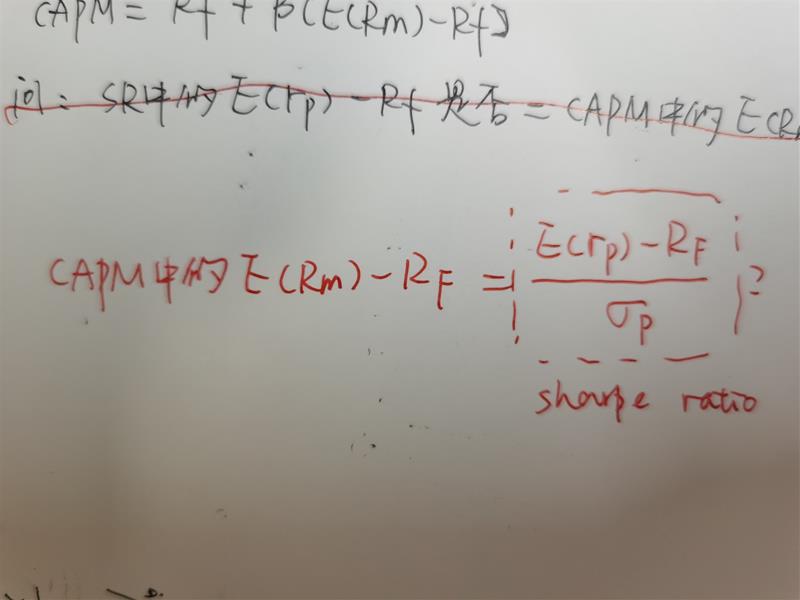 CAPM = Rf + β(E(Rm)-Rf)
问: SR中的E(rp)-Rf 是否 = CAPM中的E(R
CAPM中的E(Rm)-RF = E(rp)-RF / σp ?
sharpe ratio